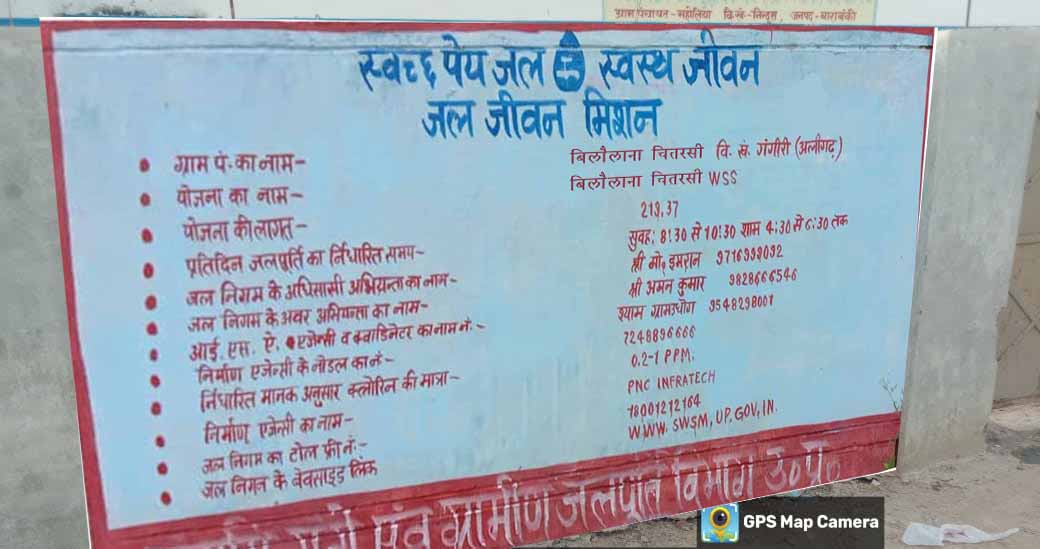 ग्राम पंचायत-महोलिया वि.खं.-निन्दूरा, जनपद-बाराबंकी
स्वच्छ पेय जल स्वस्थ जीवन
जल जीवन मिशन
ग्राम पं. का नाम- बिलौलाना चितरसी वि. खं. गंगीरी (अलीगढ़)
योजना का नाम- बिलौलाना चितरसी WSS
योजना की लागत- 219,37
प्रतिदिन जलपूर्ति का निर्धारित समय- सुबह: 8:30 से 10:30 शाम 4:30 से 6:30 तक
जल निगम के अधिसासी अभियन्ता का नाम- श्री मो. इमरान 9716999092
जल निगम के अवर अभियन्ता का नाम- श्री अमन कुमार 9828666546
आई. एस. ऐ. एजेन्सी व क्वाडिनेटर का नाम नं.- श्याम ग्रामउधोग 9548298001
निर्माण एजेन्सी के नोडल का नं- 7248896666
निर्धारित मानक अनुसार क्लोरिन की मात्रा- 0.2-1 PPM.
निर्माण एजेन्सी का नाम- PNC INFRATECH
जल निगम का टोल फ्री नं:- 18001212164
जल निगम के बेवसाइड लिंक WWW. SWSM, UP. GOV, IN.
एंव ग्रामीण जलपूर्ति विभाग उ०प्र०
GPS Map Camera